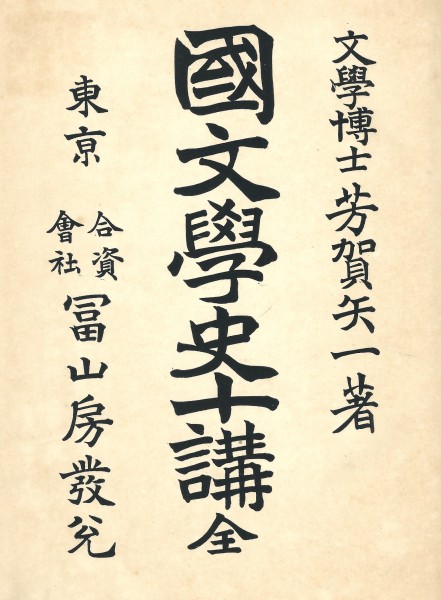 文學博士芳賀矢一著
國文學史十講全
東京合資會社冨山房發兌